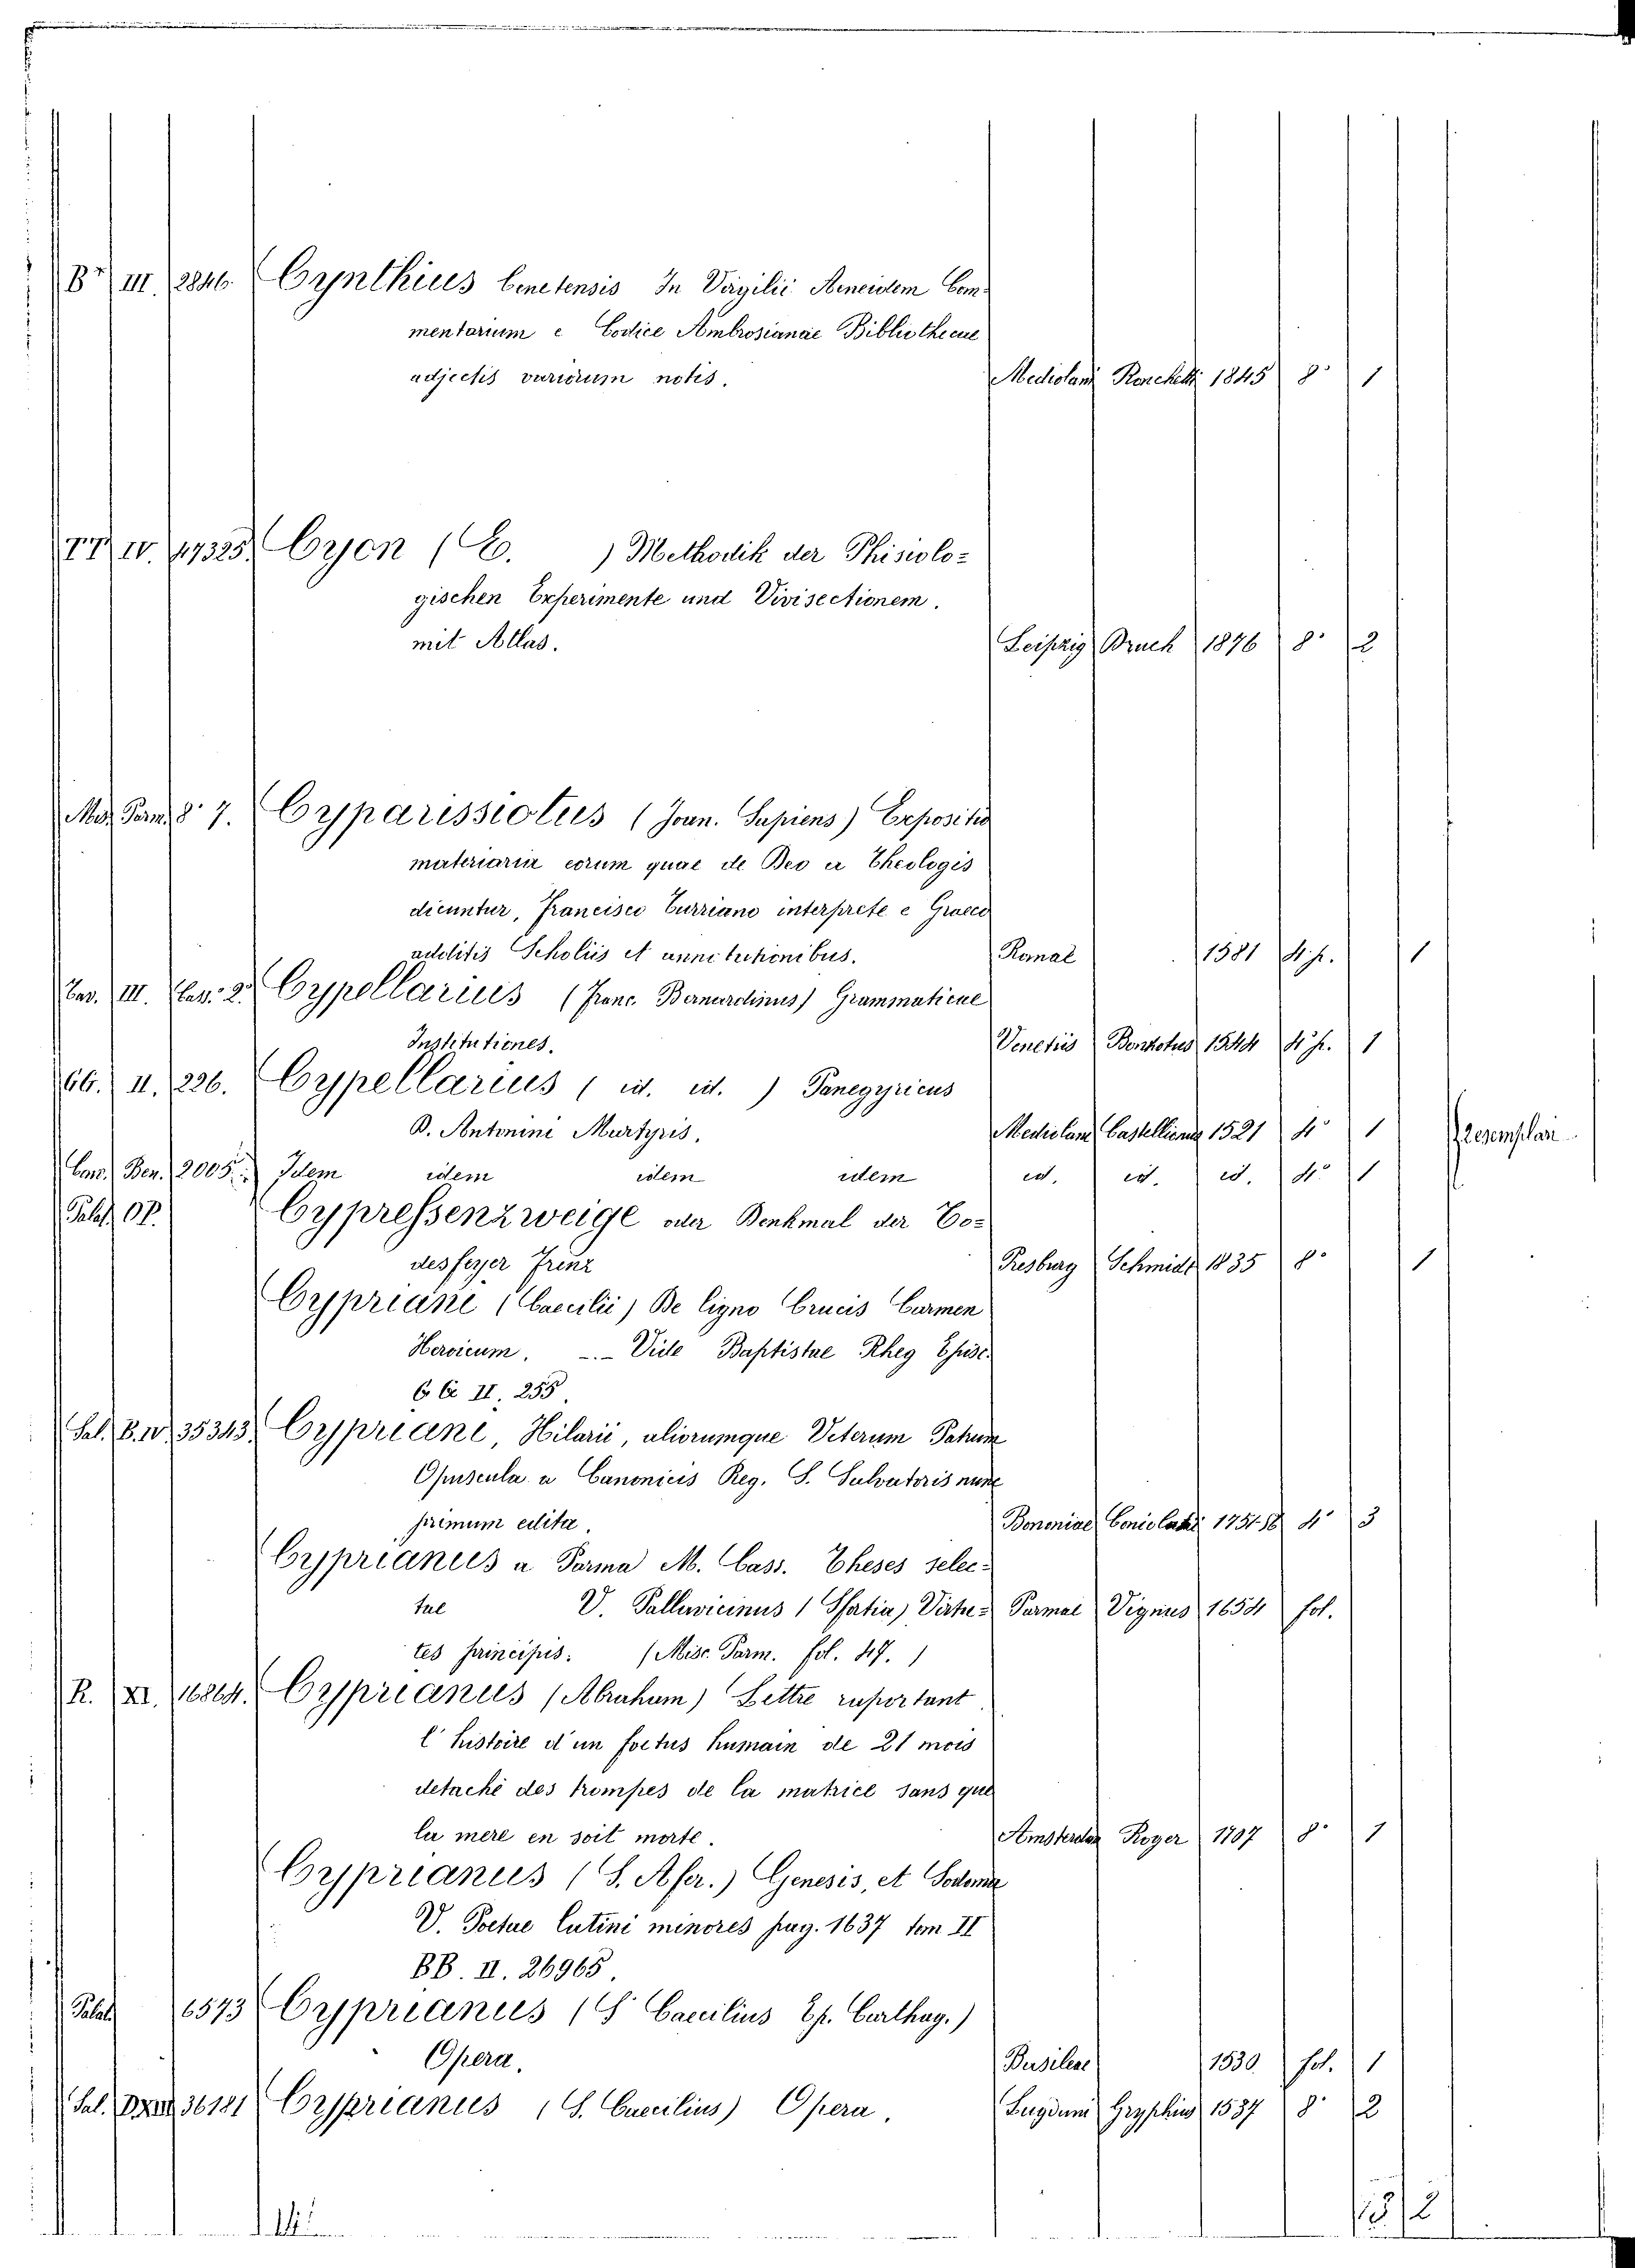 B.r III. 2846. Cynthius Cenetensis In Virgilii Aeneidem Com-
mentarium e Codice Ambrosianae Bibliothecae
adjectis variorum notis. Mediolani Ronchetti 1845 8° 1
TT IV. 47325. Cyon (E. ) Methodik der Phisiolo=
gischen Experimente und Vivisectionem.
mit Atlas. Leipzig Bruck 1876 8° 2
Misc. Parm. 8° 7. Cyparissiotus (Joan. Sapiens) Expositio
materiaria eorum quae de Deo a Theologis
dicuntur, Francisco Turriano interprete e Graeco
additis Scholiis et annotationibus. Romae 1581 4. p. 1
Cas. 2. Cypellarius (Franc. Bernardinus) Grammaticae
Institutiones. Venetiis 1544 4° p. 1
66. II. 226. Cypellarius ( id. id. ) Panegyricus
D. Antonini Martyris. Mediolani Castellioneus 1521 4° 1
2 esemplari
2005. Idem idem idem idem id. id. id. 4° 1
Palat. Cypressenzweige oder Denkmal der To=
desfeyer Presburg Schmidt 1835 8° 1
Cypriani (Caecilii) De ligno Crucis Carmen
Heroicum. -.- Vide Baptistae Rheg Episc.
6 6 II. 255
Sal. B. IV. 35343. Cypriani, Hilarii, aliorumque Veterum Patrum
Opuscula a Canonicis Reg. S. Salvatoris nunc
primum edita. Bononiae 1751.58 4° 3
Cyprianus a Parma M. Cass. Theses selec=
tae V. Pallavicinus (Sfortia) Virtu= Parmae Vignus 1654 fol.
tes principis. (Misc. Parm. fol. 47.)
R. XI. 16864. Cyprianus (Abraham) Lettre raportant
l' histoire d'un foetus humain de 21 mois
detaché des trompes de la matrice sans que
la mere en soit morte. Amsterdam Roger 1707 8° 1
Cyprianus (S. Afer.) Genesis, et Sodoma
V. Poetae latini minores pag. 1637 tom II
BB. II. 26965.
Palat. 6573 Cyprianus (S. Caecilius Ep. Carthag.)
Opera. Basileae 1530. fol. 1
Sal. 36181 Cyprianus (S. Caecilius) Opera. Lugduni Gryphius 1537 8° 2
14 13/2